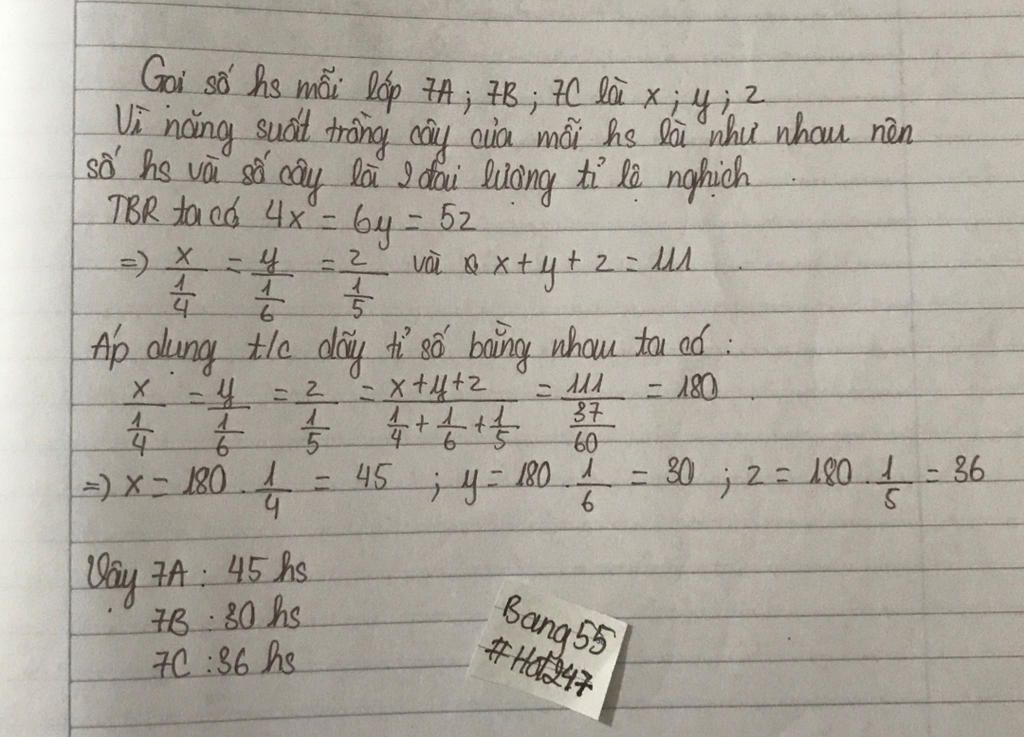 Gọi số hs mỗi lớp 7A ; 7B ; 7C là x ; y ; z
Vì năng suất trồng cây của mỗi hs là như nhau nên
số hs và số cây là 2 đại lượng tỉ lệ nghịch
TBR ta có 4x = 6y = 5z
=> x/(1/4) = y/(1/6) = z/(1/5) và x + y + z = 111
Áp dụng t/c dãy tỉ số bằng nhau ta có :
x/(1/4) = y/(1/6) = z/(1/5) = (x+y+z)/(1/4 + 1/6 + 1/5) = 111/(37/60) = 180
=> x = 180 . 1/4 = 45 ; y = 180 . 1/6 = 30 ; z = 180 . 1/5 = 36
Vậy 7A : 45 hs
7B : 30 hs
7C : 36 hs
Bang55
#Hoi247